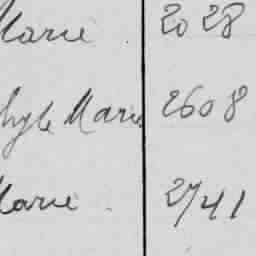 Marie 2028
Marie 2608
Marie 2741